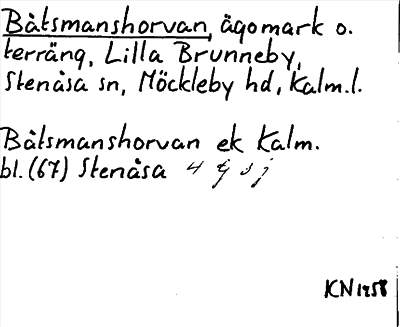 Båtsmanshorvan, ägomark o.
terräng, Lilla Brunneby,
Stenåsa sn, Möckleby hd, Kalm.l.
Båtsmanshorvan ek Kalm.
bl. (67) Stenåsa 4
KN 1958